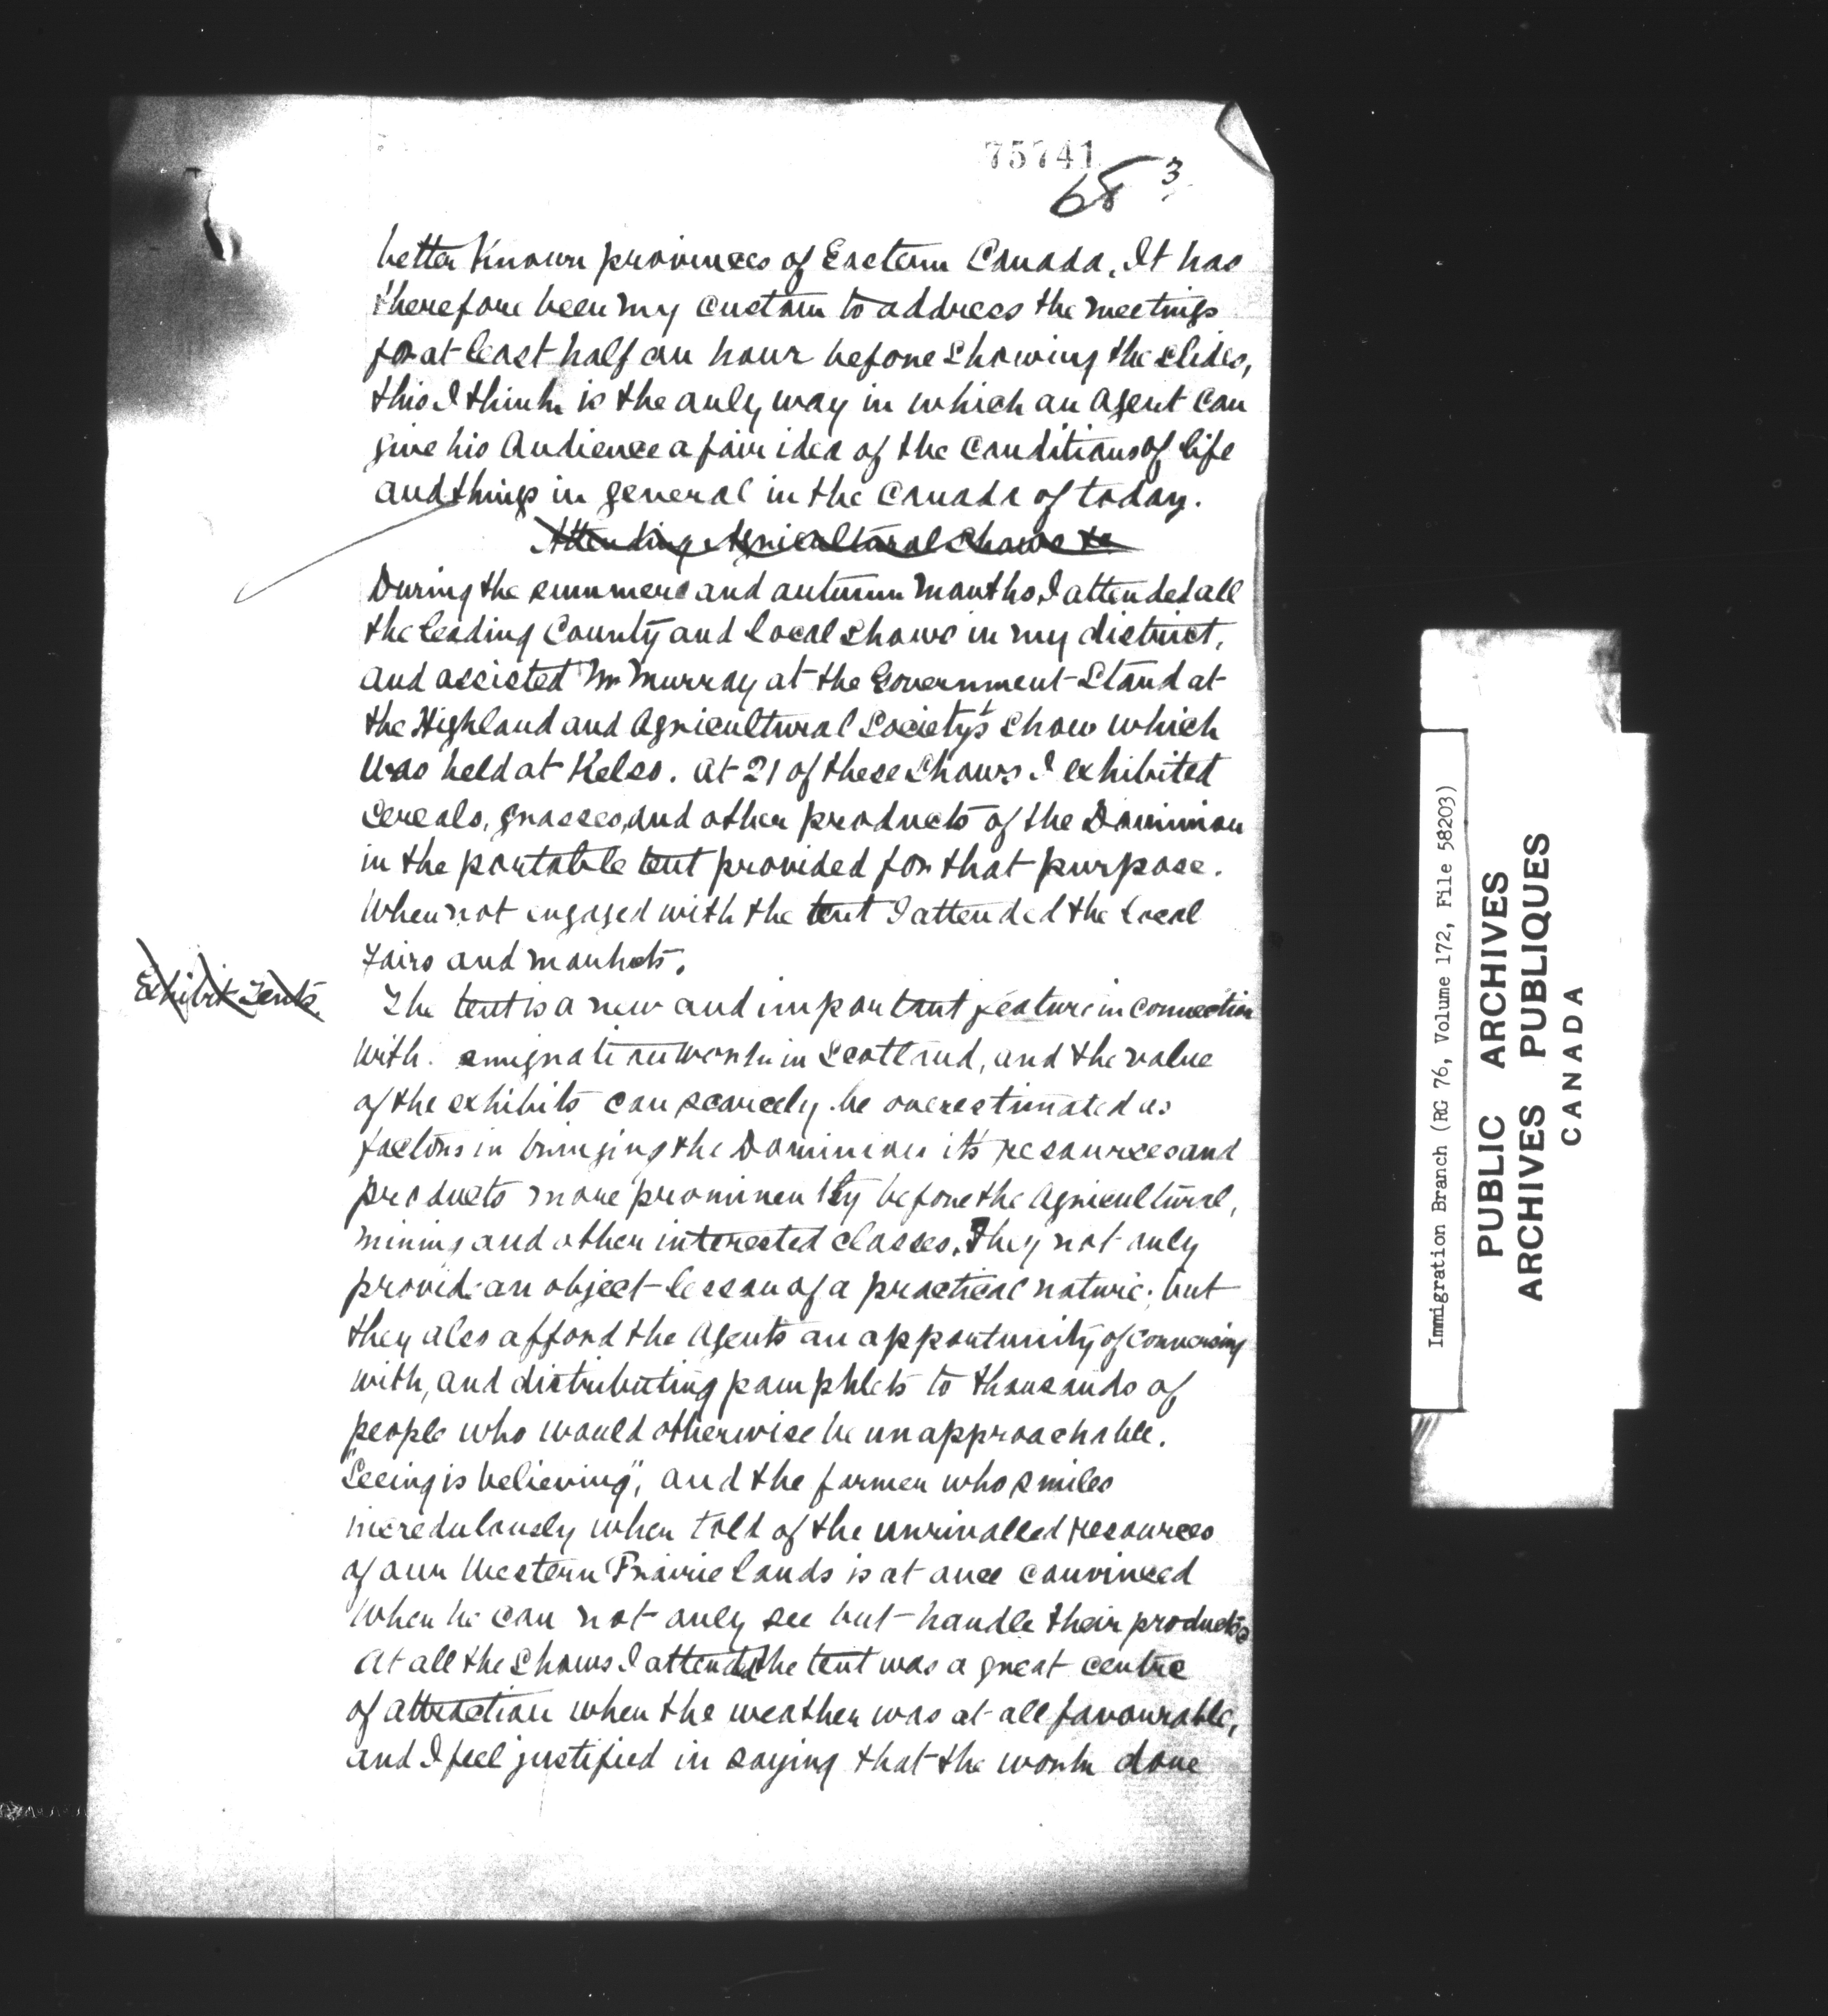 75741
68 3
better Known provinces of Eastern Canada. It has
therefore been my custom to address the meetings
for at least half an hour before showing the slides,
this I think is the only way in which an Agent can
give his Audience a fair idea of the conditions of life
and things in general in the Canada of today.
Attending Agricultural Shows &c
During the summers and autumn months, I attended all
the leading County and local shows in my district,
and assisted Mr Murray at the Government Stand at
the Highland and Agricultural Society's Show which
was held at Kelso. At 21 of these Shows I exhibited
cereals, grasses, and other products of the Dominion
in the portable tent provided for that purpose.
When not engaged with the tent I attended the local
Fairs and markets.
Exhibit Tents.
The tent is a new and important feature in connection
with emigration work in Scotland, and the value
of the exhibits can scarcely be overestimated as
factors in bringing the Dominion it's resources and
products more prominently before the Agricultural,
mining and other interested classes. They not only
provide an object-lesson of a practical nature; but
they also afford the Agents an opportunity of conversing
with, and distributing pamphlets to thousands of
people who would otherwise be unapproachable.
"Seeing is believing", and the farmer who smiles
incredulously when told of the unrivalled resources
of our Western Prairie lands is at once convinced
when he can not only see but handle their products.
At all the Shows I attended the tent was a great centre
of attraction when the weather was at all favourable,
and I feel justified in saying that the work done
Immigration Branch (RG 76, Volume 172, File 58203)
PUBLIC ARCHIVES
ARCHIVES PUBLIQUES
CANADA